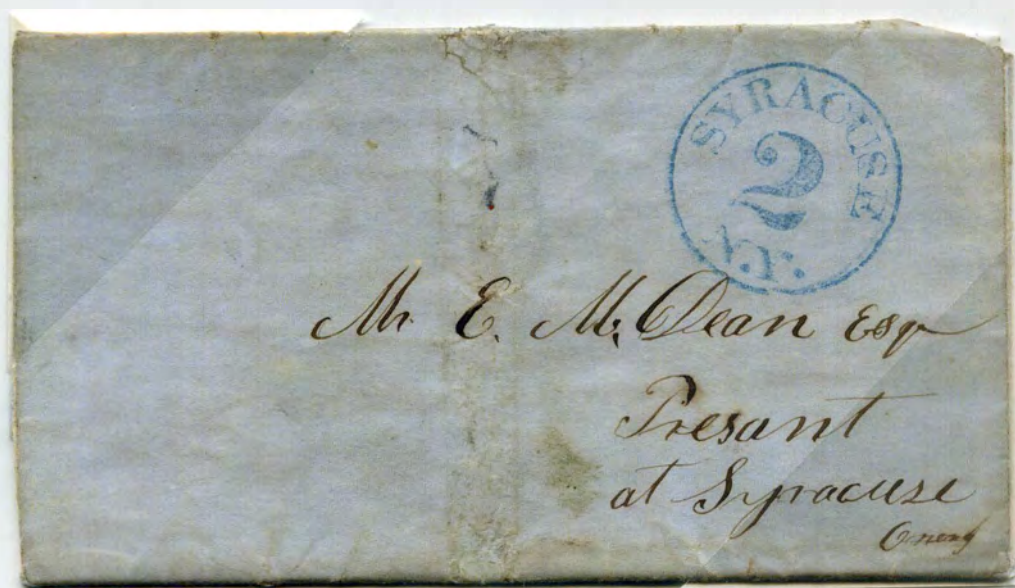 SYRACUSE
2
N.Y.
Mr E. M. Dean Esqr
Presant
at Syracuse